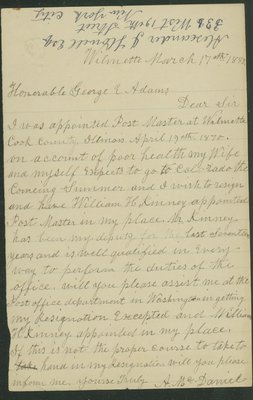 Alexander J. Howell Esq
331 West 19th Street
New York City
Wilmette March 17th 1888.
Honorable George E. Adams
Dear Sir
I was appointed Post Master at Wilmette
Cook County, Illinois April 19th 1870.
on account of poor health my Wife
and myself Expects to go to Colorado the
Comeing Summer and I wish to resign
and have William H. Kinney appointed
Post Master in my place. Mr Kinney
has been my deputy for the last Seventeen
years and is well qualified in Every-
way to perform the duties of the
office. will you please assist me at the
Post office department in Washington in getting
my Resignation Excepted and William
H. Kinney appointed in my place.
If this is not the proper course to take to
hand in my designation will you please
inform me. Yours Truly
A. Mc Daniel